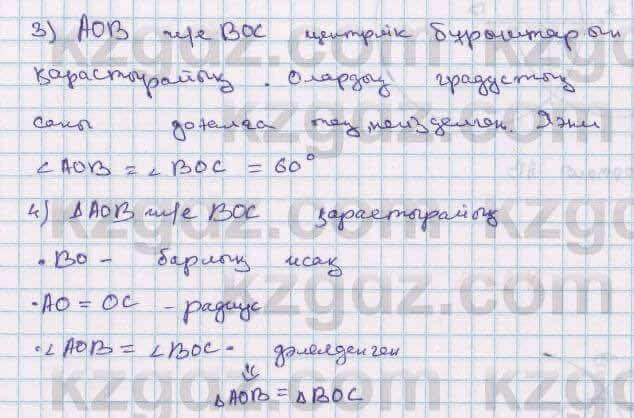 3) AOB ж/е BOC центрлік бұрыштарын
қарастырайық. Олардың градустық
саны доғалға тең, негізделген. Яғни
∠AOB = ∠BOC = 60°
4) △AOB ж/е BOC қарастырайық
• BO - барлық ұсақ
• AO = OC - радиус
• ∠AOB = ∠BOC - дәлелденген
⇓
△AOB = △BOC
kzgdz.com